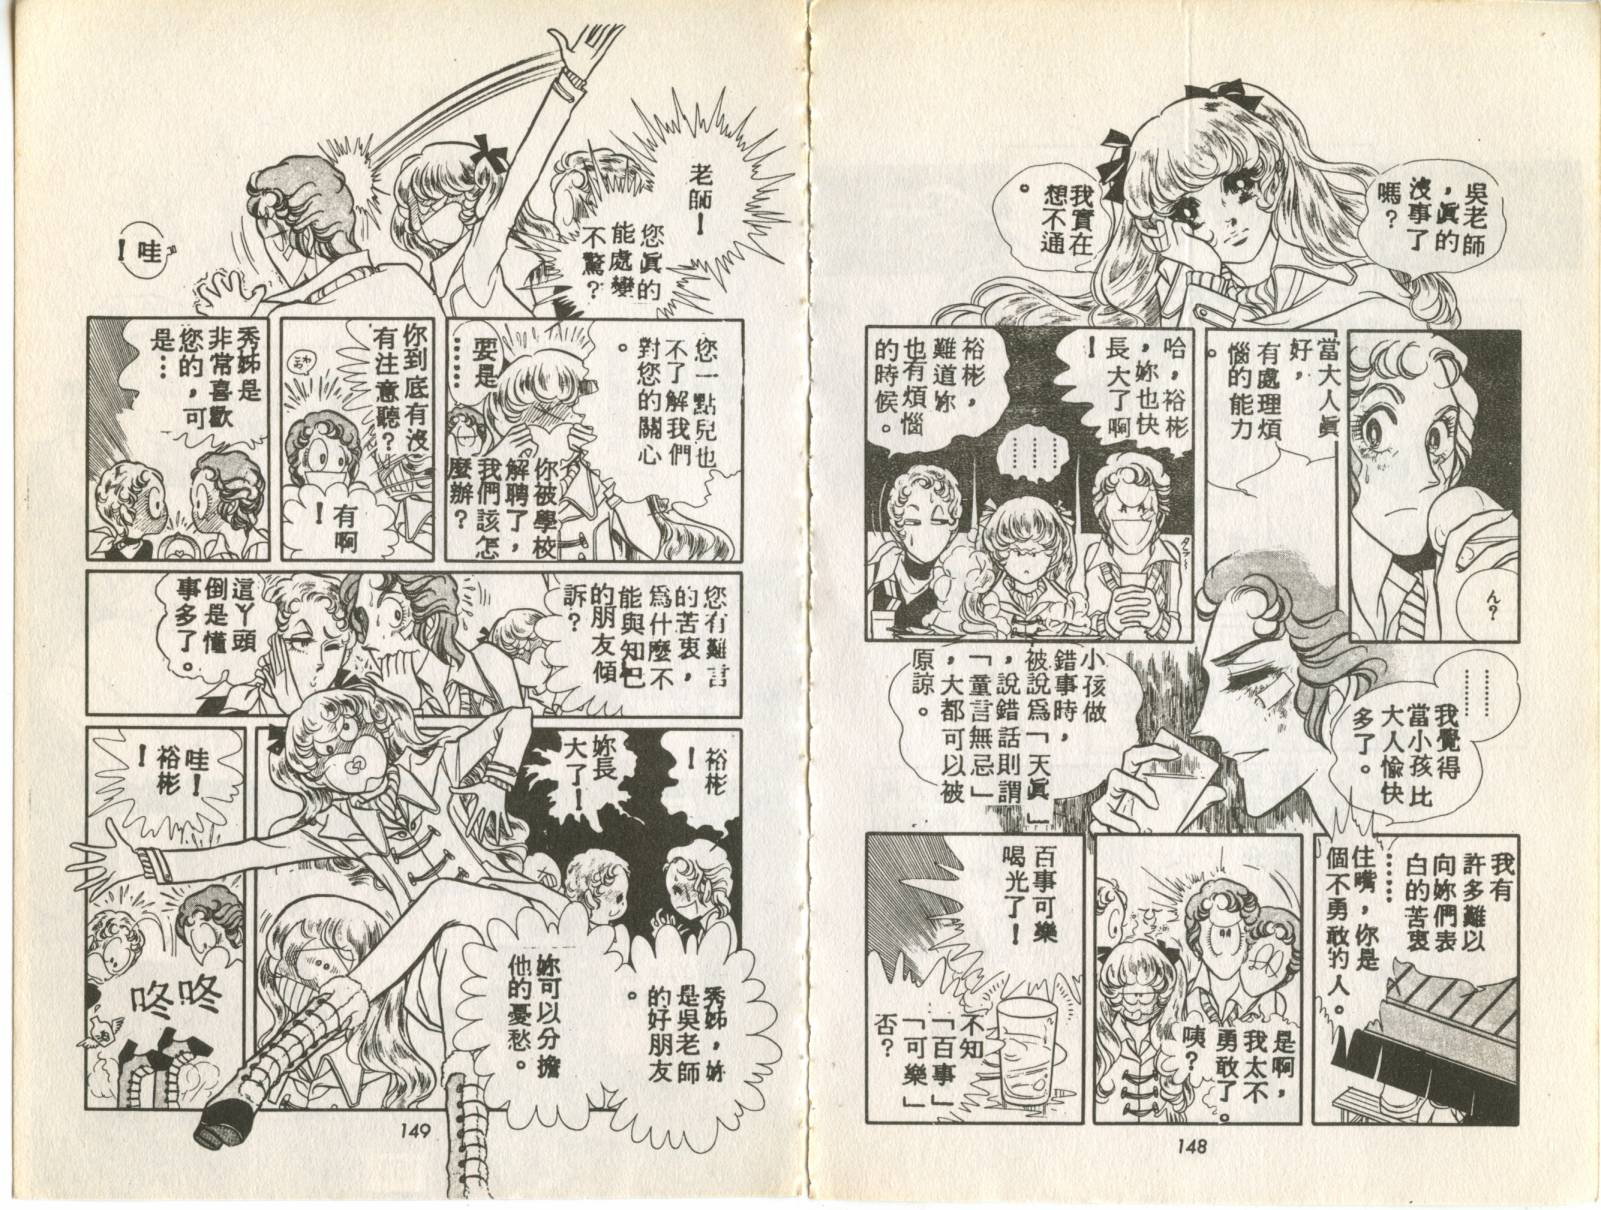 吳老師
，真的
沒事了
嗎？
我實在
想不通
。
ん？
當大人真
好，
有處理煩
惱的能力
。
哈，裕彬
，妳也快
長大了啊
！
裕彬，
難道妳
也有煩惱
的時候。
…………
………
我覺得
當小孩比
大人愉快
多了。
小孩做
錯事時，
被說為「天真」
，說錯話則謂
「童言無忌」
，大都可以被
原諒。
我有
許多難以
向妳們表
白的苦衷
……
住嘴，你是
個不勇敢的人。
是啊，
我太不
勇敢了。
咦？
百事可樂
喝光了！
不知
「百事」
「可樂」
否？
148
老師！
您真的
能處變
不驚？
哇！
您一點兒也
不了解我們
對您的關心
。
要是
……
你被學校
解聘了，
我們該怎
麼辦？
你到底有沒
有注意聽？
有啊
！
秀姊是
非常喜歡
您的，可
是…
您有難言
的苦衷，
為什麼不
能與知己
的朋友傾
訴？
這丫頭
倒是懂
事多了。
裕彬
！
妳長
大了！
秀姊，妳
是吳老師
的好朋友
。
妳可以分擔
他的憂愁。
哇！
裕彬
！
咚咚
149